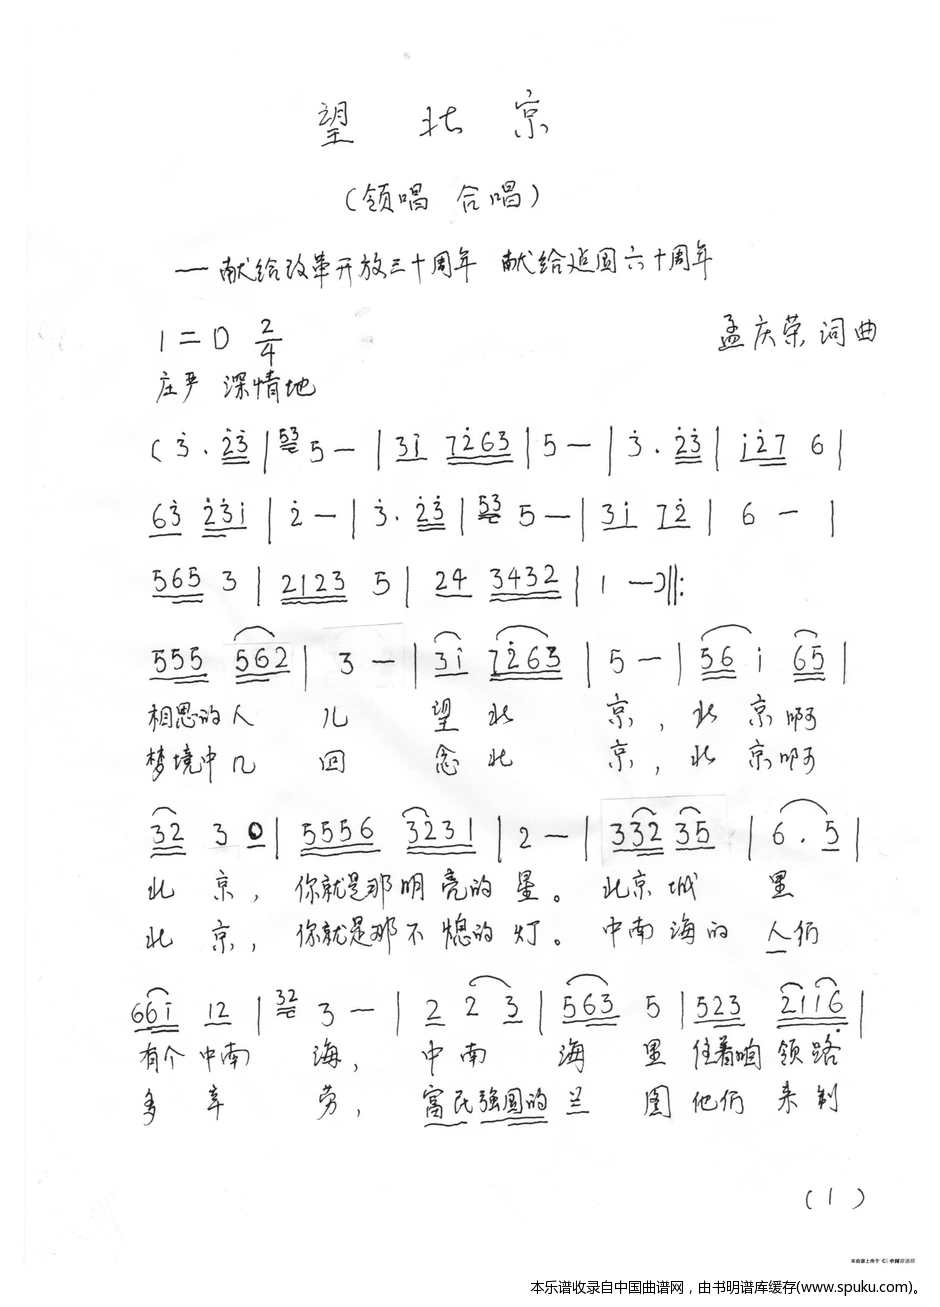 望北京
（领唱 合唱）
—献给改革开放三十周年 献给建国六十周年
1=D 2/4
孟庆荣 词曲
庄严 深情地
(3̇. 2̇3̇ | 53 5 — | 3i 72̇63 | 5 — | 3̇. 2̇3̇ | i2̇7 6 |
63̇ 2̇3̇i | 2̇ — | 3̇. 2̇3̇ | 53 5 — | 3i 72̇ | 6 — |
565 3 | 2123 5 | 24 3432 | 1 —)‖:
555 562 | 3 — | 3i 72̇63 | 5 — | 56 i 65 |
相思的人 儿 望北 京，北京啊
梦境中几 回 念北 京，北京啊
32 3 0 | 5556 3231 | 2 — | 332 35 | 6. 5 |
北 京，你就是那明亮的星。北京城 里
北 京，你就是那不熄的灯。中南海的 人们
66i 12 | 32 3 — | 2 2 3 | 563 5 | 523 2116̣ |
有个中南 海，中南 海 里 住着咱领路
多 辛 劳，富民强国的兰 图 他们 来制
(1)
本乐谱收录自中国曲谱网，由书明谱库缓存(www.spuku.com)。